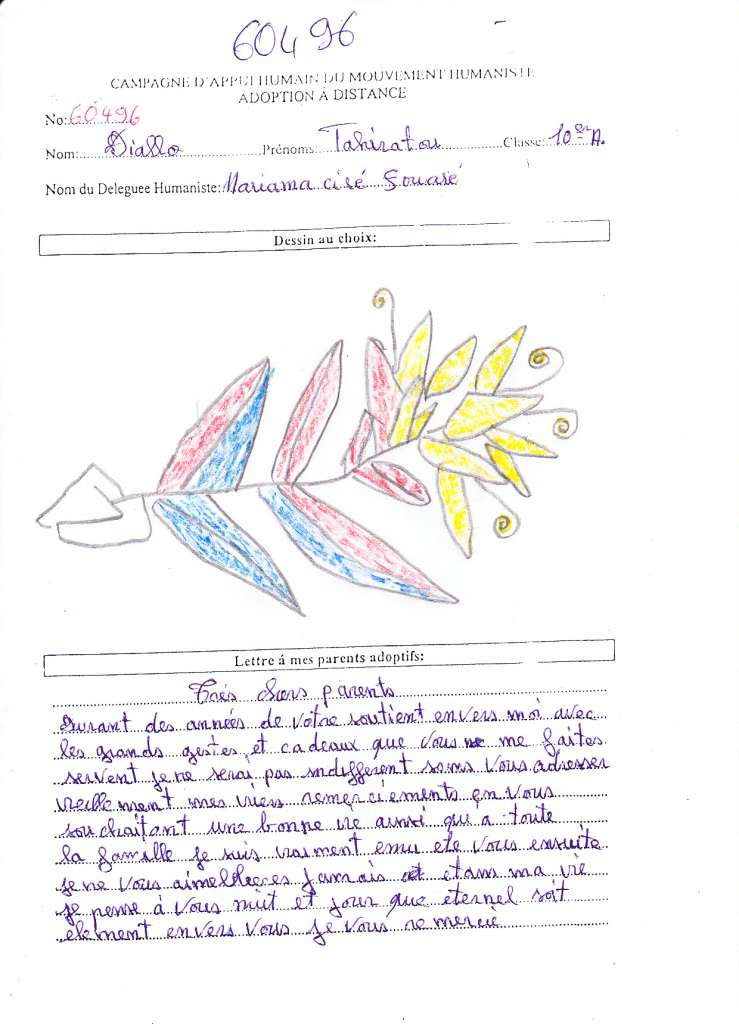 60496
CAMPAGNE D'APPUI HUMAIN DU MOUVEMENT HUMANISTE
ADOPTION À DISTANCE
No: 60496
Nom: Diallo Prénoms: Tahiratou Classe: 10 A.
Nom du Deleguee Humaniste: Mariama cisé
Dessin au choix:
Lettre á mes parents adoptifs:
Trés Chers parents
Durant des années de votre soutient envers moi avec
les grands gestes et cadeaux que vous me faites
servent je ne serai pas indifferent sans vous adresser
mes remerciements en vous
souhaitant une bonne vie ainsi qu a toute
la famille je suis vraiment emu ete vous ensuite
je ne vous jamais ma vie
je pense à vous nuit et jour que eternel soit
element envers vous je vous remercie